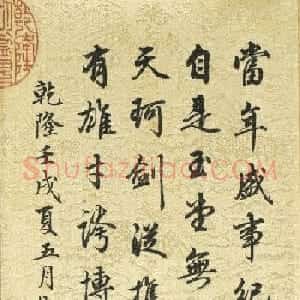 當年盛事紀
自是玉堂無
天珂劍從雍
有雄才誇博
乾隆壬戌夏五月